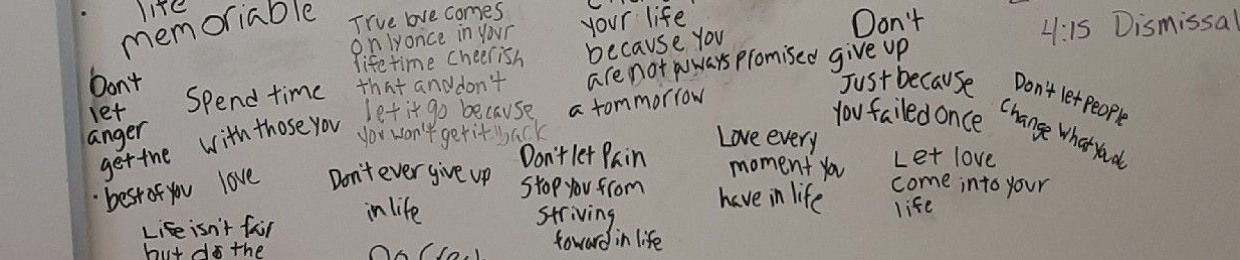 life
memoriable
True love comes
only once in your
lifetime cheerish
that and don't
let it go because
you won't get it back
your life
because you
are not always promised
a tommorrow
Don't
give up
Just because
you failed once
4:15 Dismissal
Don't let people
Change what you do
Don't
let
anger
get the
best of you
Spend time
with those you
love
Don't ever give up
in life
Don't let Pain
Stop you from
Striving
foward in life
Love every
moment you
have in life
Let love
come into your
life
Life isn't fair
but do the